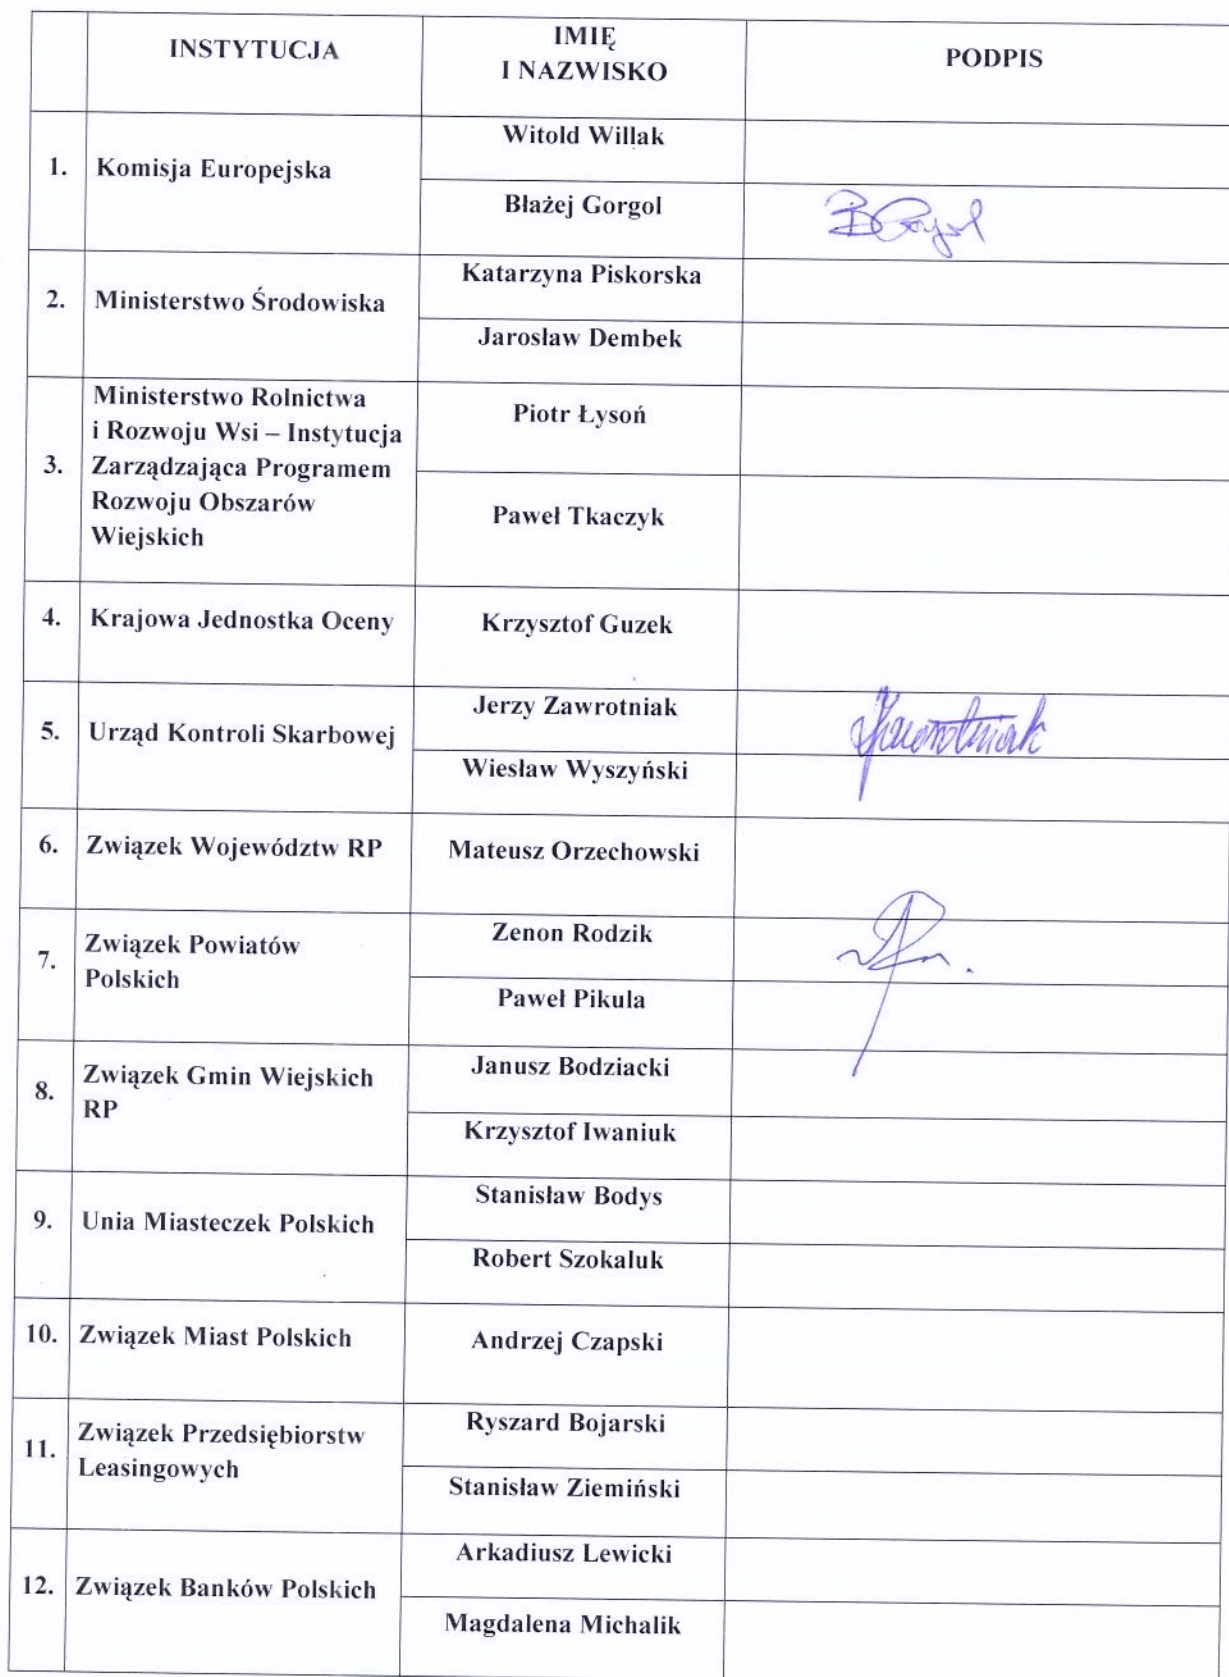 INSTYTUCJA
IMIĘ
I NAZWISKO
PODPIS
1.
Komisja Europejska
Witold Willak
Błażej Gorgol
BGorgol
2.
Ministerstwo Środowiska
Katarzyna Piskorska
Jarosław Dembek
3.
Ministerstwo Rolnictwa
i Rozwoju Wsi – Instytucja
Zarządzająca Programem
Rozwoju Obszarów
Wiejskich
Piotr Łysoń
Paweł Tkaczyk
4.
Krajowa Jednostka Oceny
Krzysztof Guzek
5.
Urząd Kontroli Skarbowej
Jerzy Zawrotniak
Zawrotniak
Wiesław Wyszyński
6.
Związek Województw RP
Mateusz Orzechowski
7.
Związek Powiatów
Polskich
Zenon Rodzik
Paweł Pikula
8.
Związek Gmin Wiejskich
RP
Janusz Bodziacki
Krzysztof Iwaniuk
9.
Unia Miasteczek Polskich
Stanisław Bodys
Robert Szokaluk
10.
Związek Miast Polskich
Andrzej Czapski
11.
Związek Przedsiębiorstw
Leasingowych
Ryszard Bojarski
Stanisław Ziemiński
12.
Związek Banków Polskich
Arkadiusz Lewicki
Magdalena Michalik